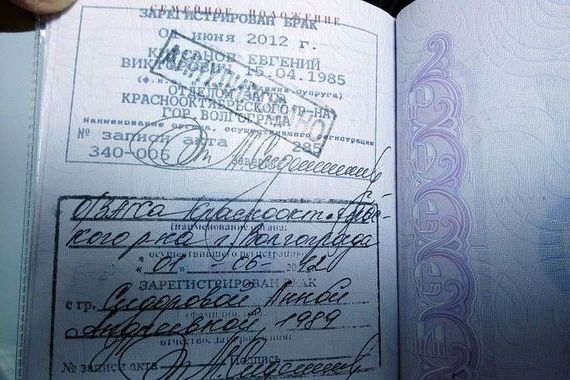 СЕМЕЙНОЕ ПОЛОЖЕНИЕ
ЗАРЕГИСТРИРОВАН БРАК
01 июня 2012 г.
ЕВГЕНИЙ
ВИКТОРОВИЧ 15.04.1985
супруга)
ОТДЕЛОМ
КРАСНООКТЯБРЬСКОГО Р-НА
ГОР. ВОЛГОГРАДА
Наименование органа, осуществившего регистрацию
№ записи акта 285
340-006
О/ЗАГСа Краснооктябрьс-
(наименование органа:
кого р-на г. Волгограда
осуществившего регистрацию)
"01" - 06 - 2012
ЗАРЕГИСТРИРОВАН БРАК
с гр. Сидоровой Анной
Андреевной, 1989
отчество, дата рождения)
№ записи акта Подпись